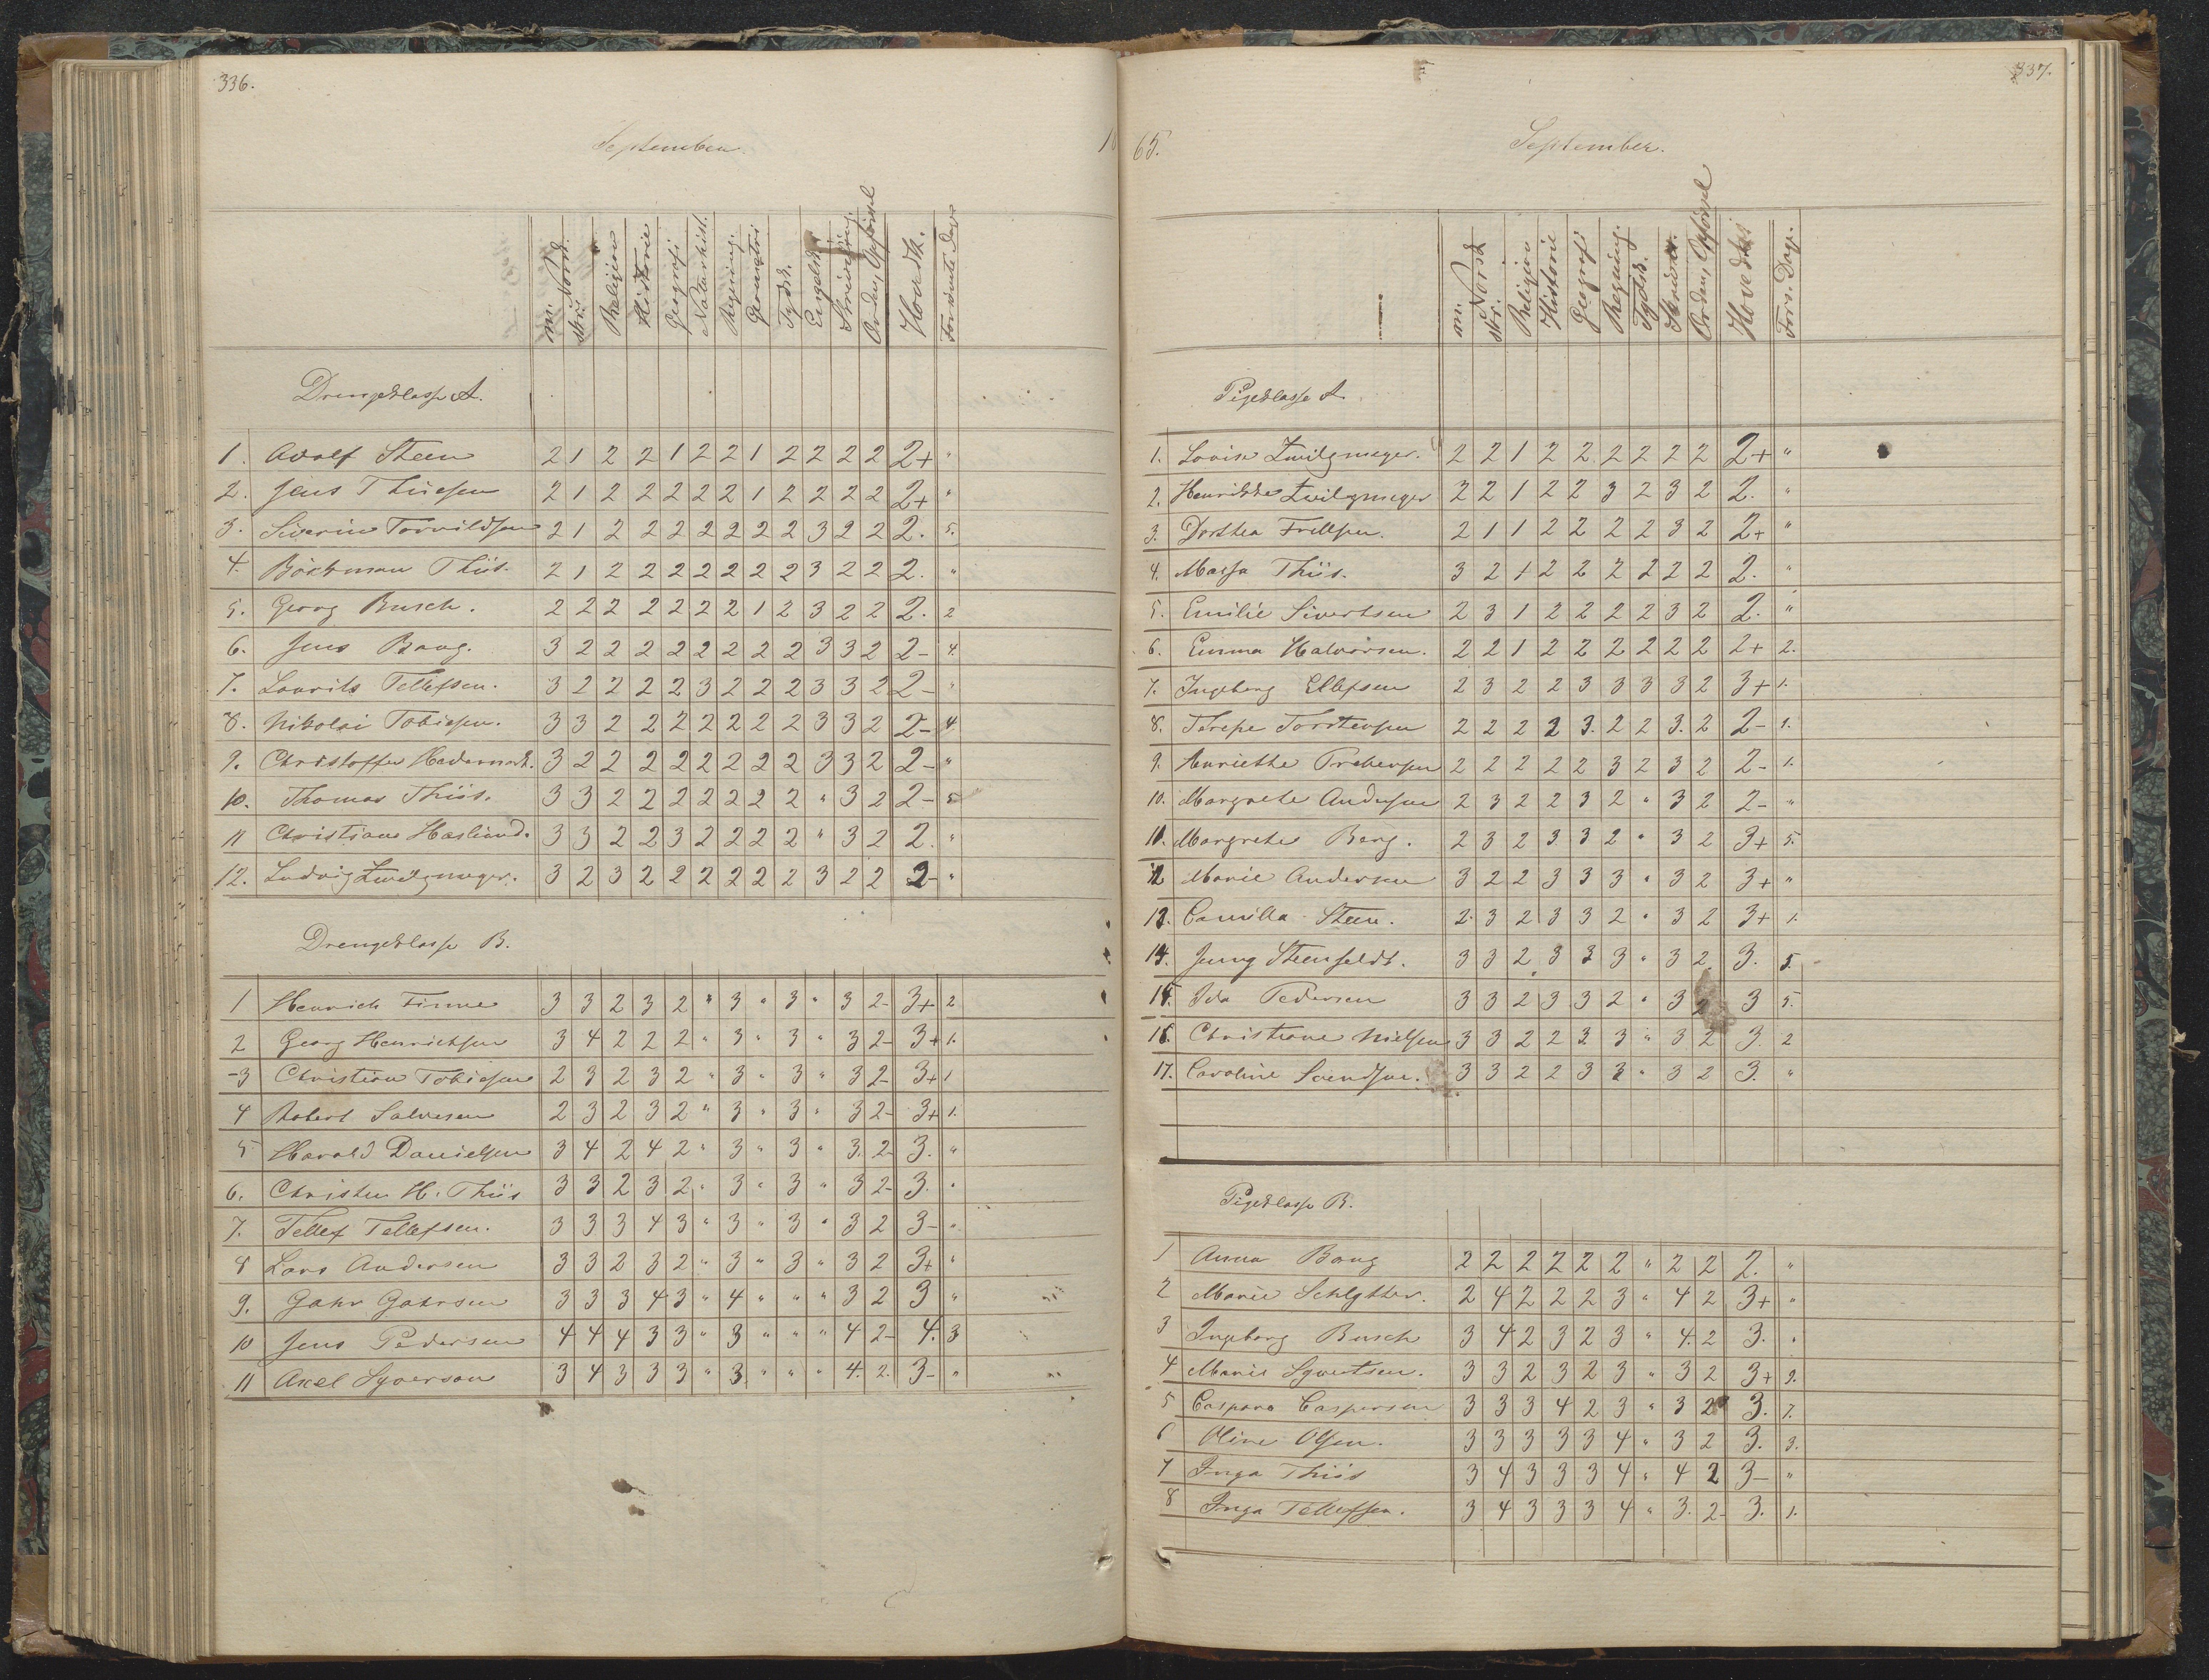 336.
September
18
mü. Norsk. skr. Religion Historie Geografi Naturhist. Regning. Geometri Tydsk. Engelsk Skrivning. Orden, Opførsel Hovedk. Forsømte Dage
Drengeklasse A.
1. Adolf Steen 2 1 2 2 1 2 2 1 2 2 2 2 2+ "
2. Jens Thiesen 2 1 2 2 2 2 2 1 2 2 2 2 2+ "
3. Siverin Torvildsen 2 1 2 2 2 2 2 2 2 3 2 2 2. 5.
4. Böckman Thiis. 2 1 2 2 2 2 2 2 2 3 2 2 2. "
5. Georg Busch. 2 2 2 2 2 2 2 1 2 3 2 2 2. 2
6. Jens Bang. 3 2 2 2 2 2 2 2 2 3 3 2 2- 4.
7. Laurits Tellefsen. 3 2 2 2 2 3 2 2 2 3 3 2 2- "
8. Nikolai Tobiesen. 3 3 2 2 2 2 2 2 2 3 3 2 2- 4.
9. Christoffer Hedemark. 3 2 2 2 2 2 2 2 2 3 3 2 2- "
10. Thomas Thiis. 3 3 2 2 2 2 2 2 2 " 3 2 2- 5
11 Christian Haslund. 3 3 2 2 3 2 2 2 2 " 3 2 2. "
12. Ludvig Zwilgmeyer. 3 2 3 2 2 2 2 2 2 3 2 2 2- "
Drengeklasse B.
1 Henrich Finne 3 3 2 3 2 " 3 " 3 " 3 2- 3+ 2
2 Georg Henrichsen 3 4 2 2 2 " 3 " 3 " 3 2- 3+ 1.
3 Christian Tobiesen 2 3 2 3 2 " 3 " 3 " 3 2- 3+ 1
4 Robert Salvesen 2 3 2 3 2 " 3 " 3 " 3 2- 3+ 1.
5 Harald Danielsen 3 4 2 4 2 " 3 " 3 " 3. 2- 3. "
6. Christen H. Thiis 3 3 2 3 2 " 3 " 3 " 3 2- 3. "
7. Tellef Tellefsen. 3 3 3 4 3 " 3 " 3 " 3 2 3- "
8 Lars Andersen 3 3 2 3 2 " 3 " 3 " 3 2 3+ "
9. Gahr Gahrsen 3 3 3 4 3 " 4 " " " 3 2 3 "
10 Jens Pedersen 4 4 4 3 3 " 3 " " " 4 2- 4. 3
11 Axel Syversen 3 4 3 3 3 " 3. " " " 4. 2. 3- "
337.
65.
September.
mü. Norsk skr. Religion Historie Geografi Regning. Tydsk. Skrivn. Orden, Opførsel Hovedkar Fors. Dage.
Pigeklasse A.
1. Lovise Zwilgmeyer. 2 2 1 2 2 2 2 2 2 2+ "
2. Henrikke Zwilgmeyer 2 2 1 2 2 3 2 3 2 2. "
3. Dorthea Frellsen. 2 1 1 2 2 2 2 3 2 2+ "
4. Massa Thiis. 3 2 1 2 2 2 2 2 2 2. "
5. Emilie Sivertsen 2 3 1 2 2 2 2 3 2 2. "
6. Emma Halvorsen. 2 2 1 2 2 2 2 2 2 2+ 2.
7. Ingeborg Ellefsen 2 3 2 2 3 3 3 3 2 3+ 1.
8. Terese Torstensen 2 2 2 2 3. 2 2 3. 2 2- 1.
9. Anriette Prebensen 2 2 2 2 2 3 2 3 2 2- 1.
10. Margrethe Andersen 2 3 2 2 3 2 " 3 2 2- "
11. Margrethe Berg. 2 3 2 3 3 2 " 3 2 3+ 5.
12 Marie Andersen 3 2 2 3 3 3 " 3 2 3+ "
13. Camilla Steen. 2. 3 2 3 3 2 " 3 2 3+ 1.
14. Jenny Steenfeldt. 3 3 2 3 3 3 " 3 2 3. 5.
15. Ida Pedersen 3 3 2 3 3 2 " 3 2 3 5.
16. Christiane Nielsen 3 3 2 2 3. 3 " 3 2 3. 2
17. Caroline Svendsen. 3 3 2 2 3 3 " 3 2 3. "
Pigeklasse B.
1 Anna Bang 2 2 2 2 2 2 " 2 2 2. "
2 Marie Schlytter. 2 4 2 2 2 3 " 4 2 3+ "
3 Ingeborg Busch 3 4 2 3 2 3 " 4. 2 3. "
4 Marie Syvertsen. 3 3 2 3 2 3 " 3 2 3+ 9.
5 Caspara Caspersen 3 3 3 4 2 3 " 3 2 3. 7.
6 Oline Olsen. 3 3 3 3 3 4 " 3 2 3. 3.
7 Inga Thiis 3 4 3 3 3 4 " 4 2 3- "
8 Inga Tellefsen. 3 4 3 3 3 4 " 3. 2- 3. 1.